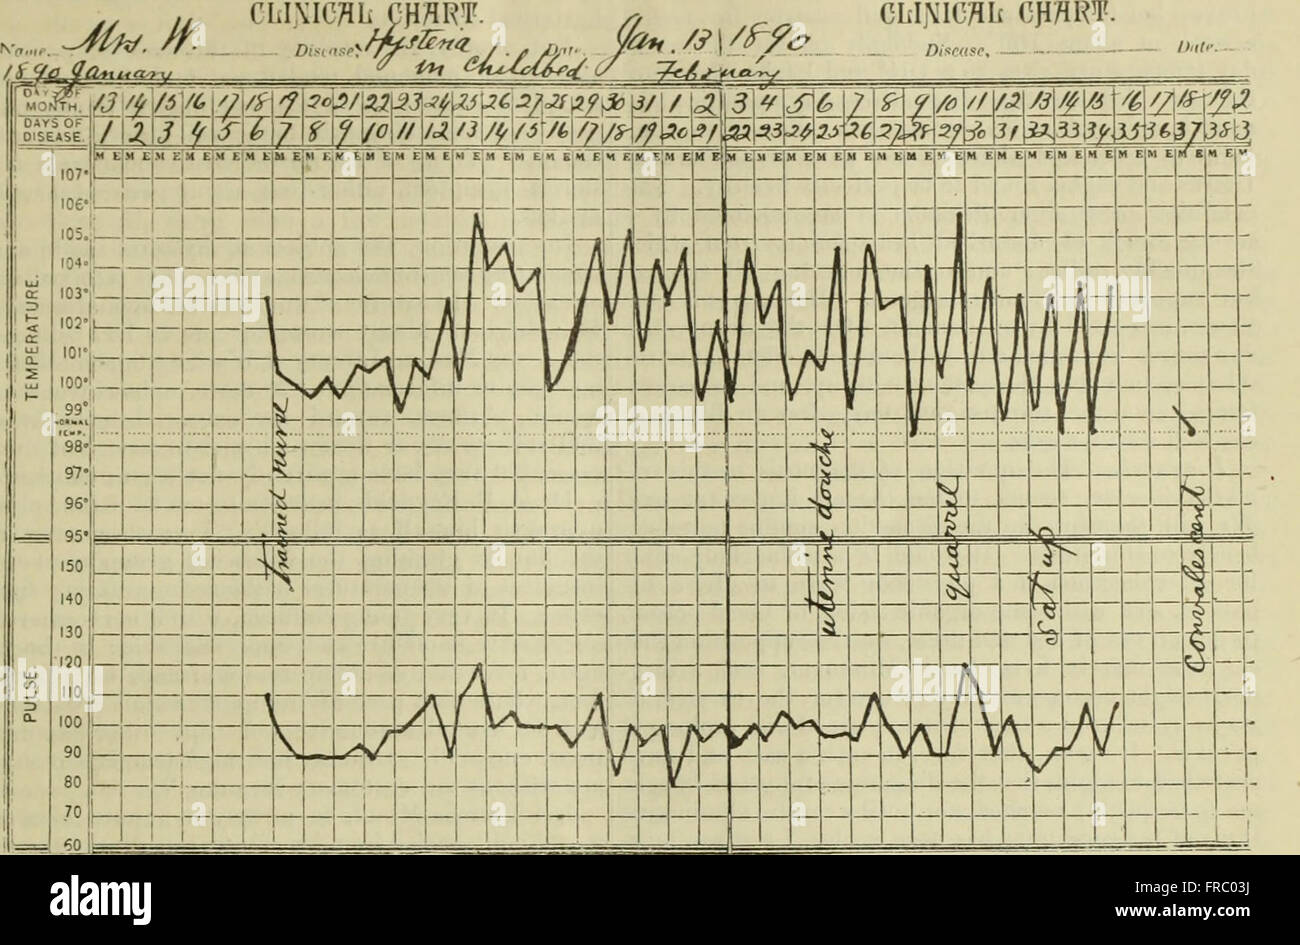 CLINICAL CHART. CLINICAL CHART.
Name, Mrs. W. Disease, Hysteria in childbed Date, Jan. 13 1890 Disease, Date,
1890 January February
DAY OF MONTH. 13 14 15 16 17 18 19 20 21 22 23 24 25 26 27 28 29 30 31 1 2 3 4 5 6 7 8 9 10 11 12 13 14 15 16 17 18 19 2
DAYS OF DISEASE. 1 2 3 4 5 6 7 8 9 10 11 12 13 14 15 16 17 18 19 20 21 22 23 24 25 26 27 28 29 30 31 32 33 34 35 36 37 38 3
M E M E M E M E M E M E M E M E M E M E M E M E M E M E M E M E M E M E M E M E M E M E M E M E M E M E M E M E M E M E M E M E M E M E M E M E M E M E M
TEMPERATURE.
107°
106°
105.
104°
103°
102°
101°
100°
99°
NORMAL TEMP.
98°
97°
96°
95°
trained nurse
uterine douche
quarrel
sat up
convalescent
PULSE.
150
140
130
120
110
100
90
80
70
60
alamy
alamy
Image ID: FRC03J
www.alamy.com